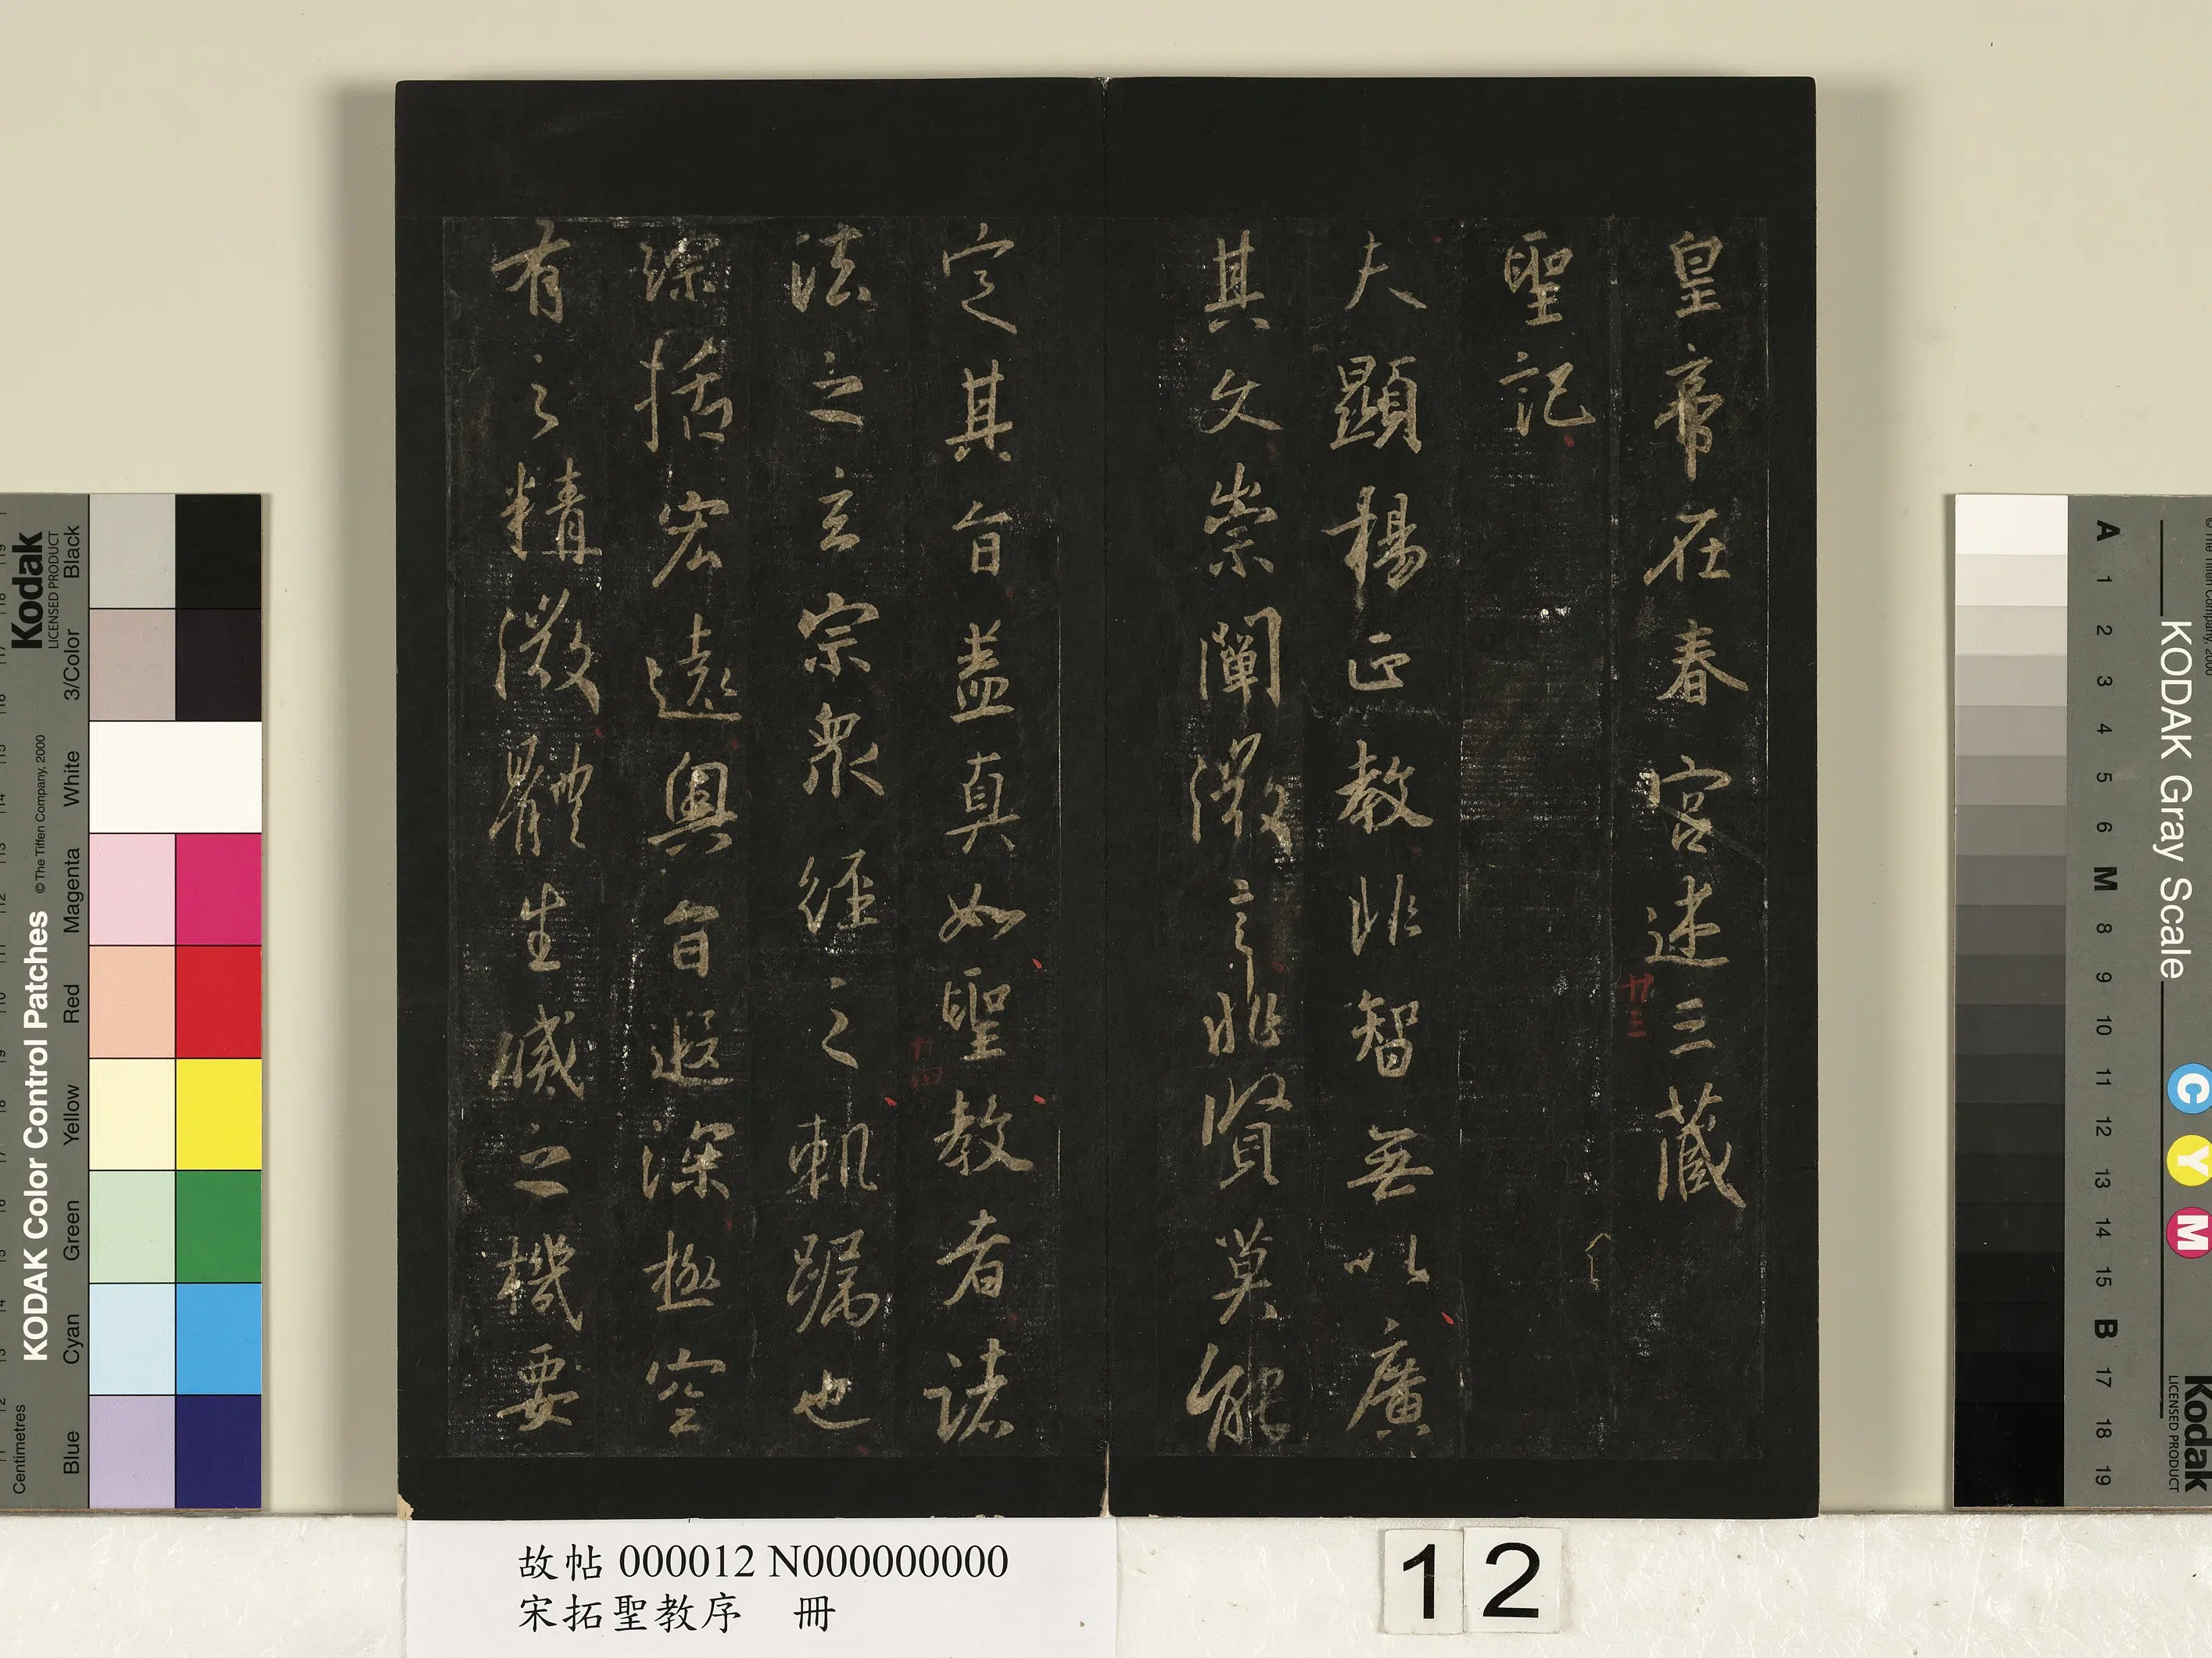 皇帝在春宮述三藏
聖記
夫顯揚正教非智無以廣
其文崇闡微言非賢莫能
定其旨盖真如聖教者諸
法之玄宗衆經之軌躅也
綜括宏遠奧旨遐深極空
有之精微體生滅之機要
廿三
廿四
故帖 000012 N000000000
宋拓聖教序 冊
12
Kodak
LICENSED PRODUCT
KODAK Color Control Patches
© The Tiffen Company, 2000
Centimetres
Blue Cyan Green Yellow Red Magenta White 3/Color Black
KODAK Gray Scale
A 1 2 3 4 5 6 M 8 9 10 11 12 13 14 15 B 17 18 19
C Y M
Kodak
LICENSED PRODUCT